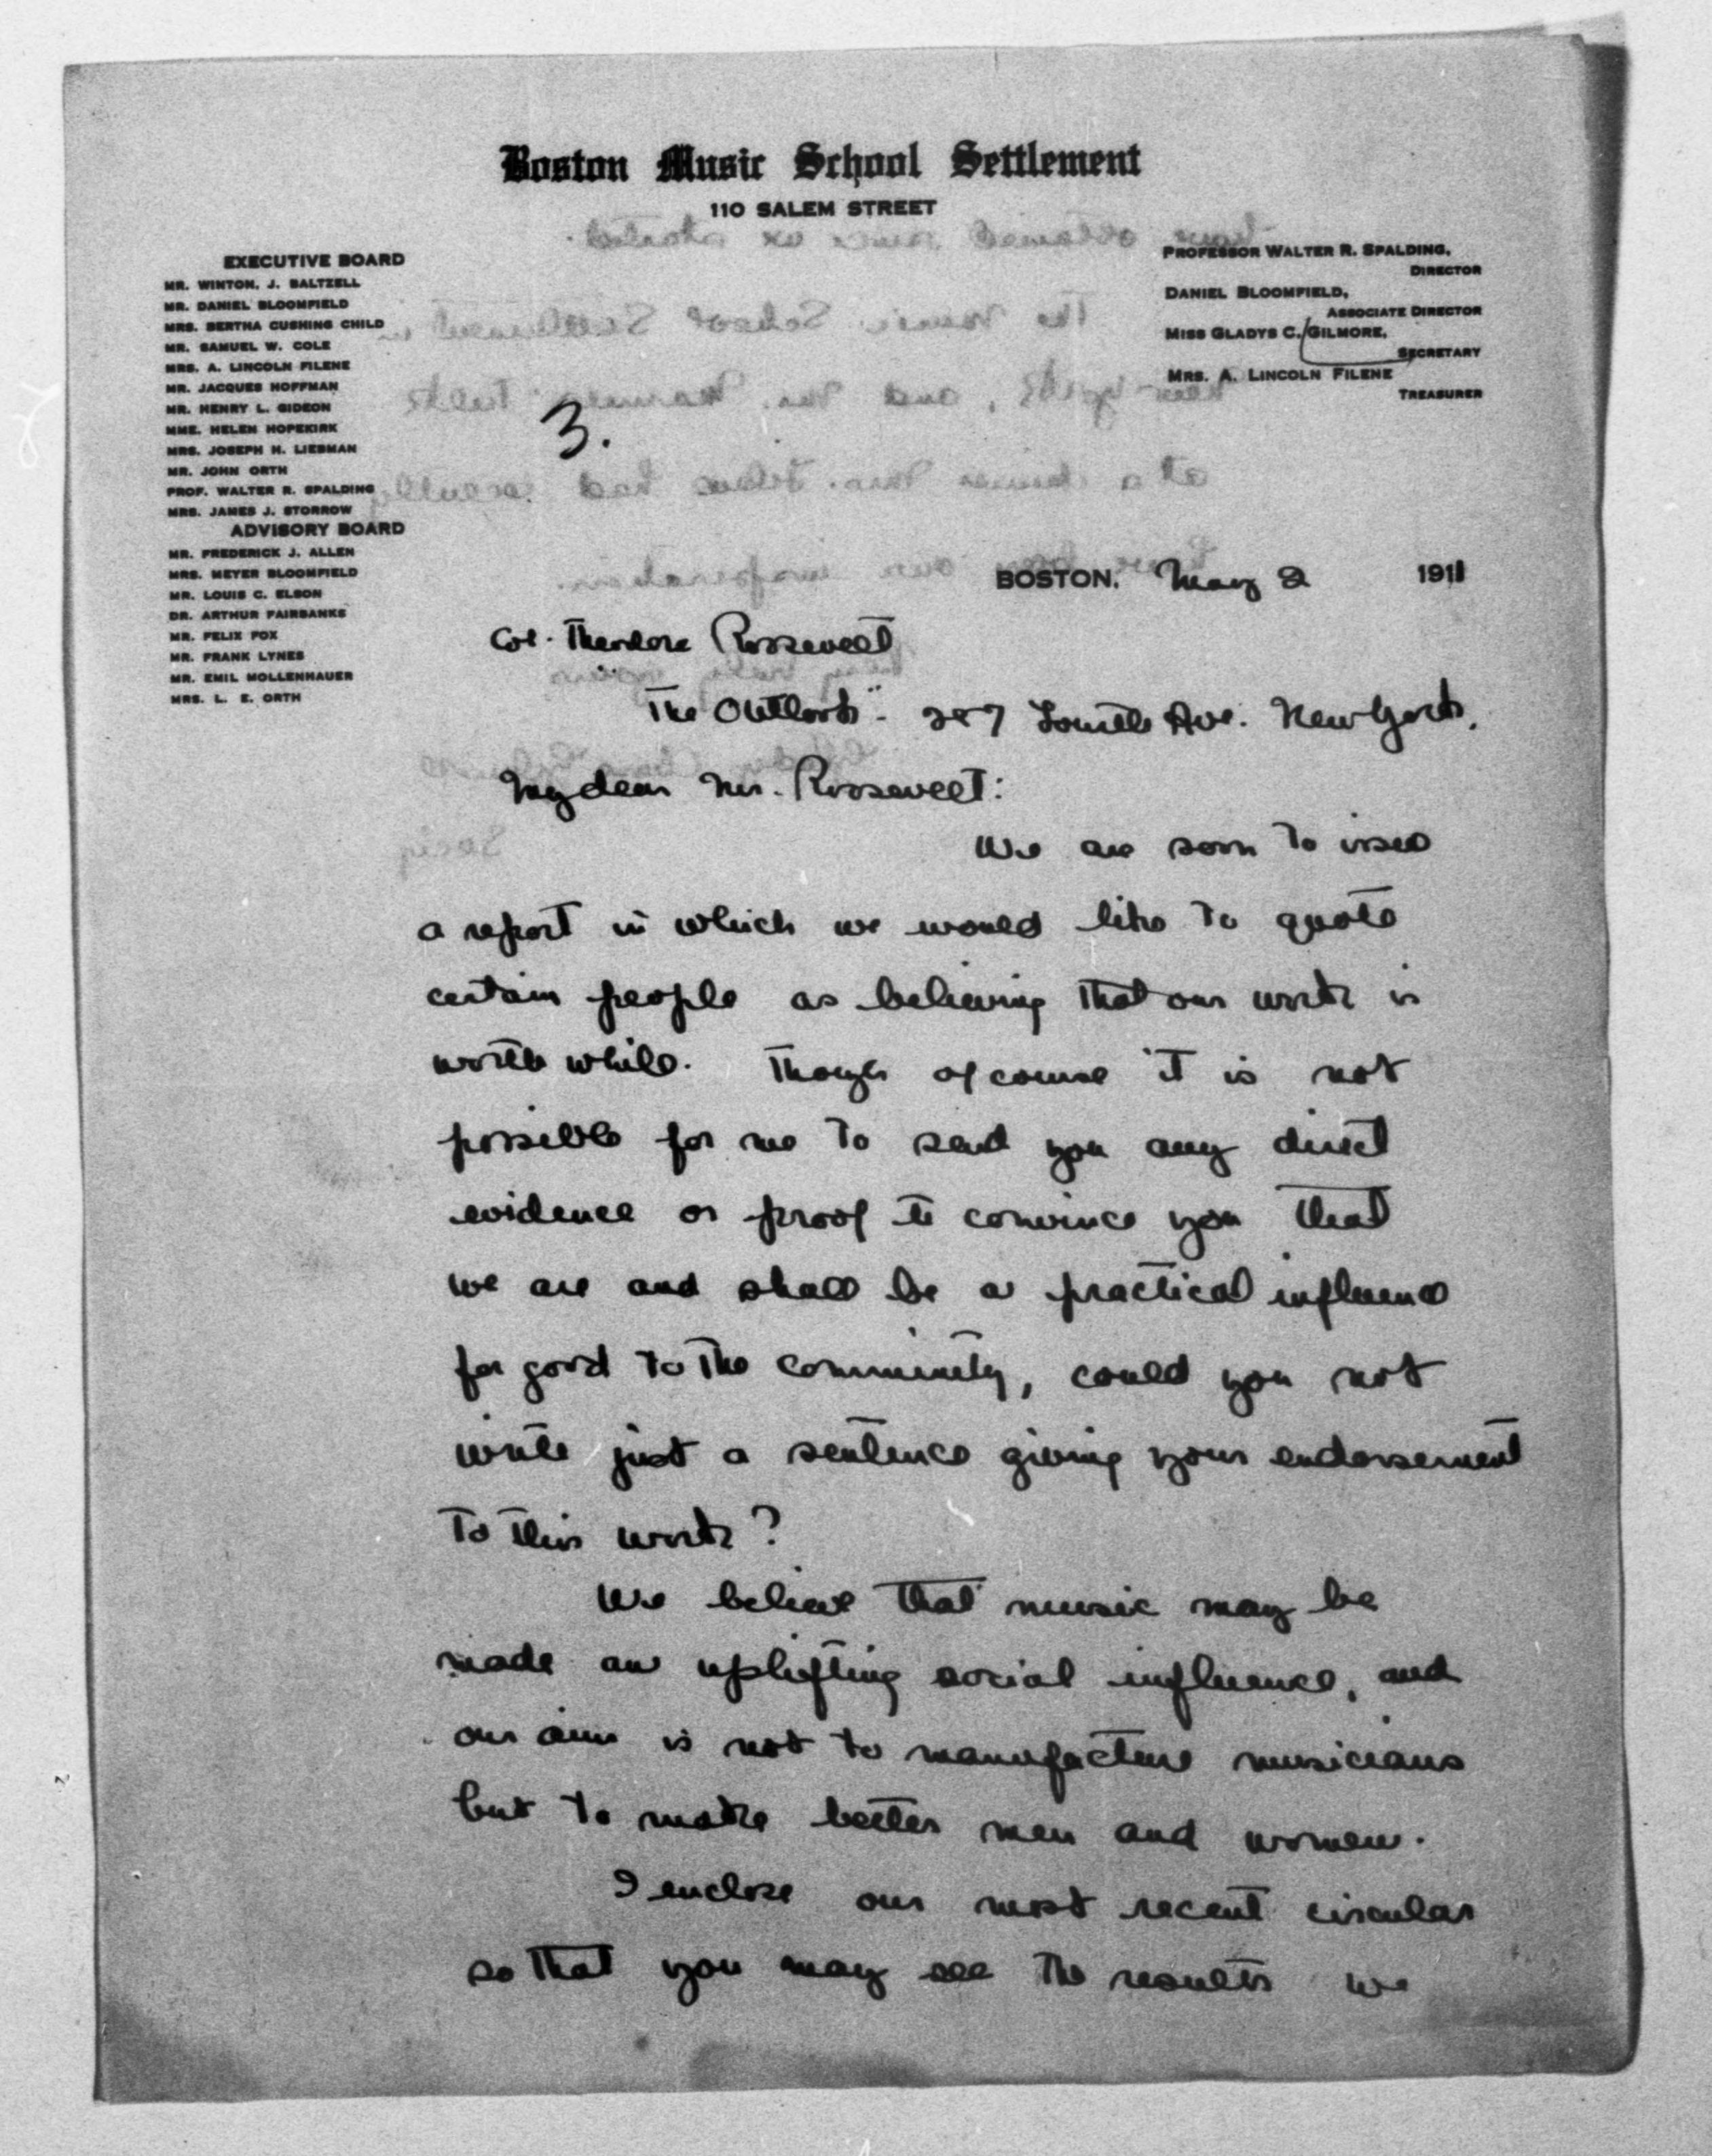 Boston Music School Settlement
110 SALEM STREET
EXECUTIVE BOARD
MR. WINTON. J. BALTZELL
MR. DANIEL BLOOMFIELD
MRS. BERTHA CUSHING CHILD
MR. SAMUEL W. COLE
MRS. A. LINCOLN FILENE
MR. JACQUES HOFFMAN
MR. HENRY L. GIDEON
MME. HELEN HOPEKIRK
MRS. JOSEPH H. LIEBMAN
MR. JOHN ORTH
PROF. WALTER R. SPALDING
MRS. JAMES J. STORROW
ADVISORY BOARD
MR. FREDERICK J. ALLEN
MRS. MEYER BLOOMFIELD
MR. LOUIS C. ELSON
DR. ARTHUR FAIRBANKS
MR. FELIX FOX
MR. FRANK LYNES
MR. EMIL MOLLENHAUER
MRS. L. E. ORTH
PROFESSOR WALTER R. SPALDING,
DIRECTOR
DANIEL BLOOMFIELD,
ASSOCIATE DIRECTOR
MISS GLADYS C. GILMORE,
SECRETARY
MRS. A. LINCOLN FILENE
TREASURER
3.
BOSTON, May 2 1911
Col. Theodore Roosevelt
"The Outlook" - 287 Fourth Ave. New York.
My dear Mr. Roosevelt:
We are soon to issue
a report in which we would like to quote
certain people as believing that our work is
worth while. Though of course it is not
possible for me to send you any direct
evidence or proof to convince you that
we are and shall be a practical influence
for good to the community, could you not
write just a sentence giving your endorsement
to this work?
We believe that music may be
made an uplifting social influence, and
our aim is not to manufacture musicians
but to make better men and women.
I enclose our most recent circular
so that you may see the results we